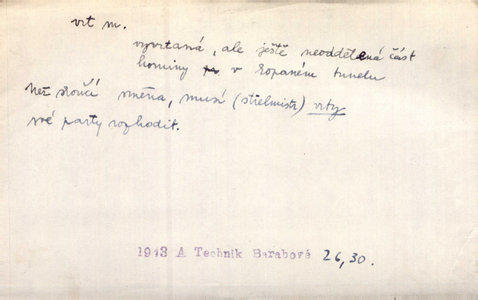 vrt m.
vyvrtaná, ale ještě neoddělená část
horniny v kopaném tunelu
Než skončí směna, musí (střelmistr) vrty
své party rozhodit.
1943 A Technik Barabové 26,30.